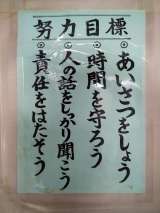 努力目標
◎あいさつをしよう
◎時間を守ろう
◎人の話をしっかり聞こう
◎責任をはたそう